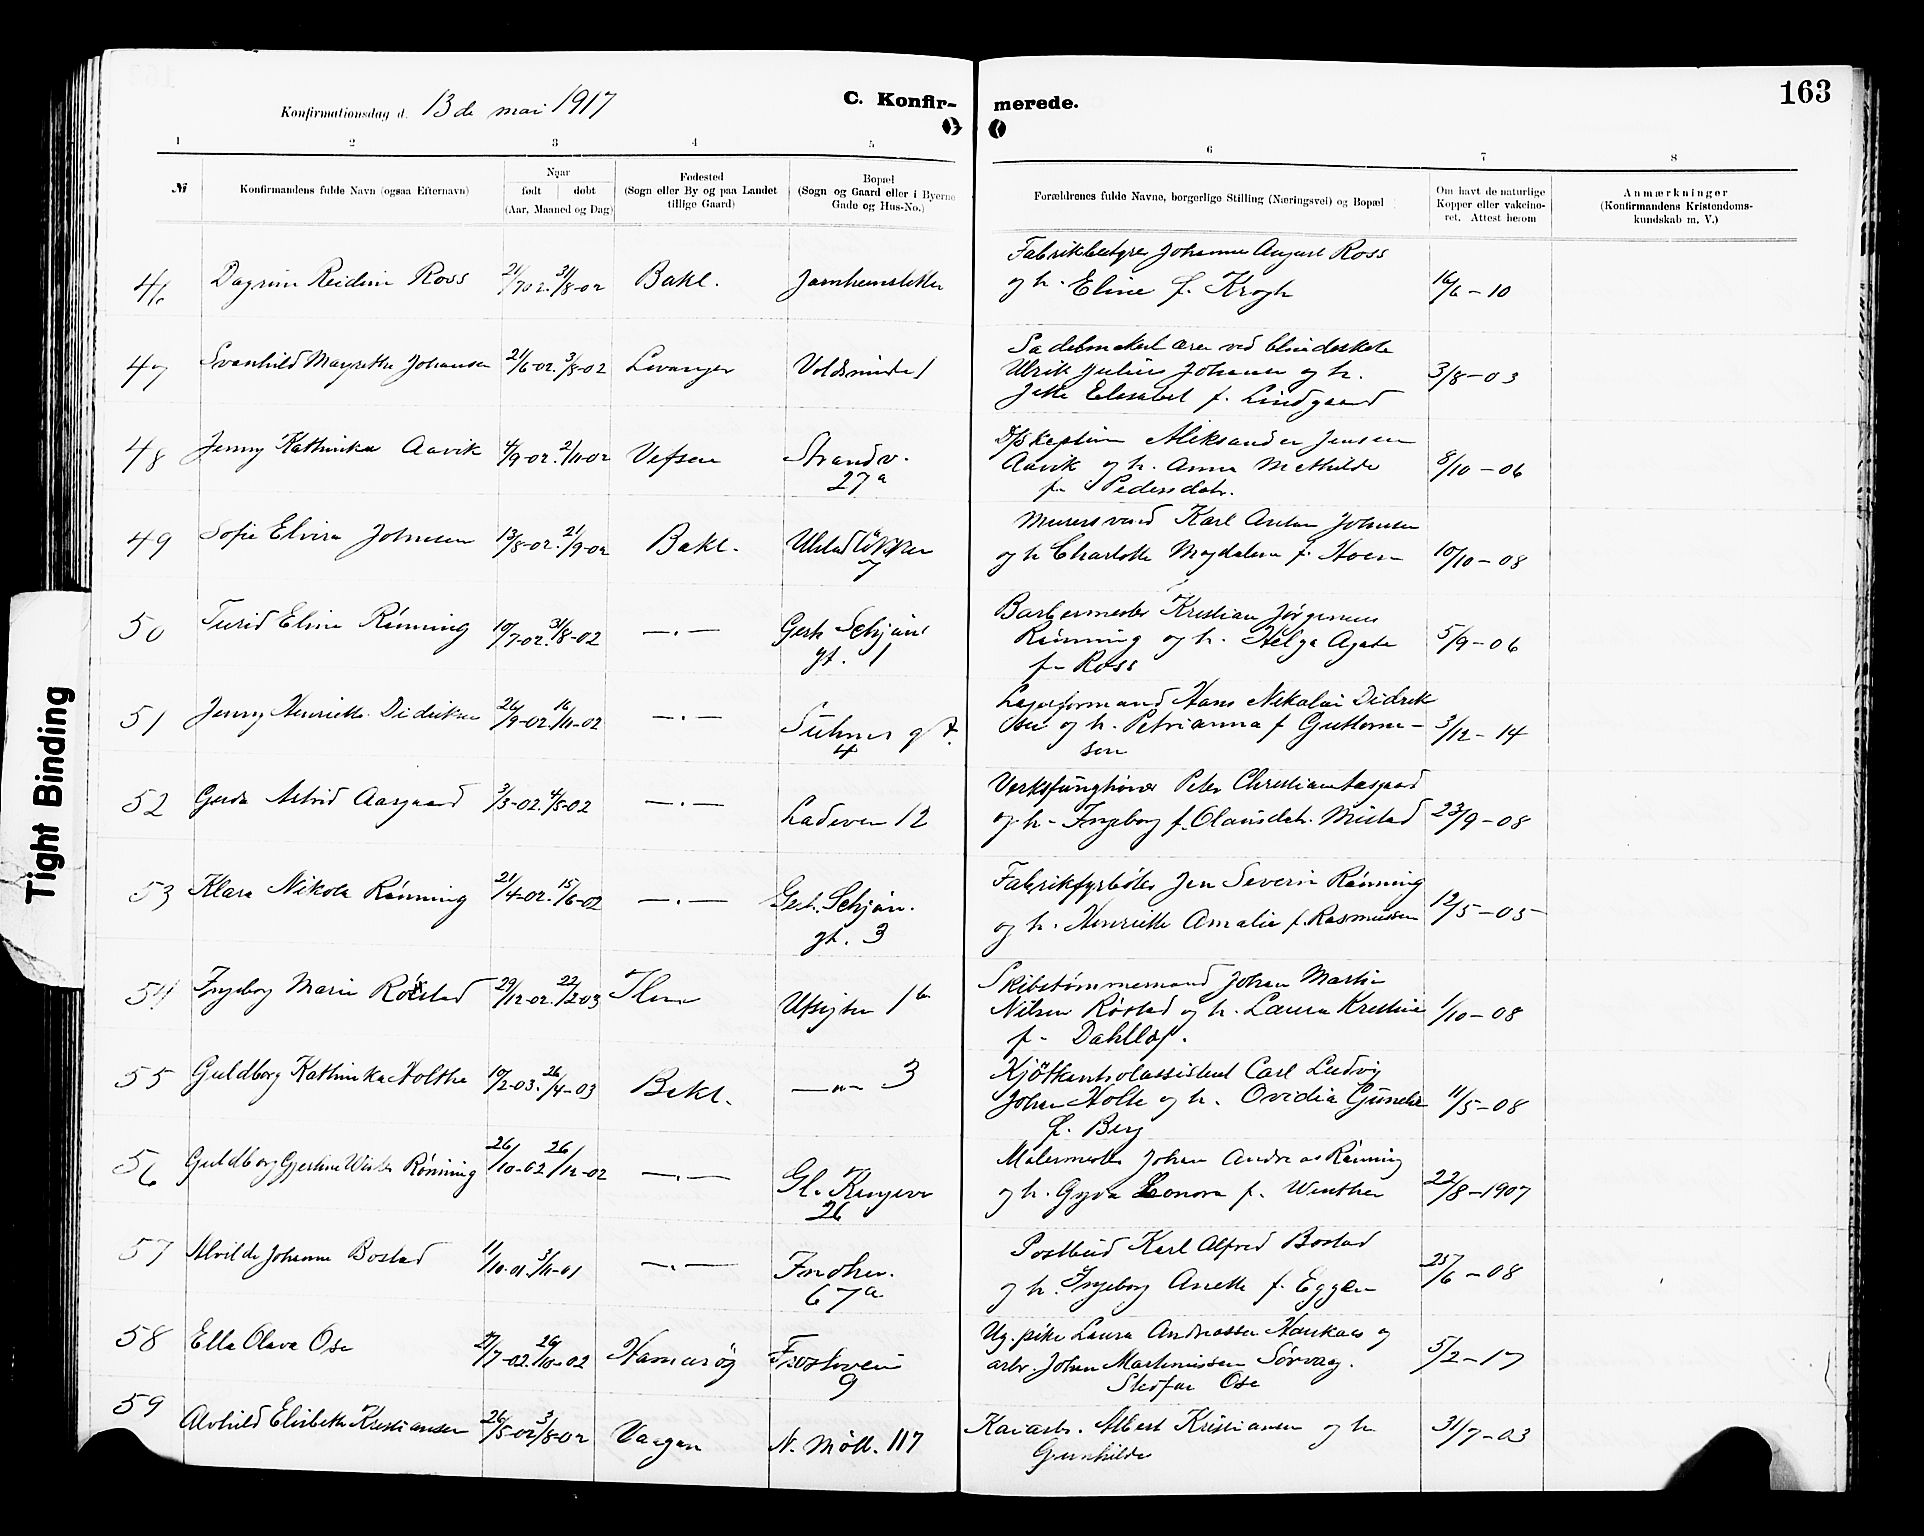 163
Konfirmationsdag d. 13de mai 1917
C. Konfir-
merede.
1 2 3 4 5 6 7 8
№
Konfirmandens fulde Navn (ogsaa Efternavn)
Naar
født døbt
(Aar, Maaned og Dag)
Fødested
(Sogn eller By og paa Landet
tillige Gaard)
Bopæl
(Sogn og Gaard eller i Byerne
Gade og Hus-No.)
Forældrenes fulde Navne, borgerlige Stilling (Næringsvei) og Bopæl
Om havt de naturlige
Kopper eller vakcine-
ret. Attest herom
Anmærkninger
(Konfirmandens Kristendoms-
kundskab m. V.)
46 Dagrun Reidun Ross 21/7 02. 31/8-02 Bakl.
Johannes August Ross
og h. Eline f. Krogh
16/6-10
47 Svanhild Margrethe Johansen 21/6-02. 3/8-02 Levanger Voldsminde 1
ved blindeskole
Ulrik Julius Johansen og h.
Elisabet f. Lindgaard
3/8-03
48 Jenny Kathinka Aavik 4/9-02. 2/11-02 Vefsen Strandv.
27a
D/S Kaptein Aleksander Jensen
Aavik og h. Anna Mathilde
f. Pedersdatr.
8/10-06
49 Sofie Elvira Johnsen 13/8-02. 21/9-02 Bakl. Ulstadløkken
7
Murersvend Karl Anton Johnsen
og h Charlotte Magdalena f. Hoem
10/10-08
50 Turid Eline Rønning 10/7-02. 31/8-02 —.— Gerh Schjøn
gt. 1
Barbermester Kristian Jørgensen
Rønning og h. Helga Agate
f. Ross
5/9-06
51 Jenny Henriette Didriksen 26/9-02. 16/11-02 —.— Suhms gt.
4
Lagerformand Hans Nikolai Didrik
sen og h. Petrianna f Guttorm-
sen
3/12-14
52 Gerda Astrid Aasgaard 3/3-02. 4/5-02 —.— Ladeveien 12
Peter Christian Aasgaard
og h. Ingeborg f. Olausdatr. Mistad
23/9-08
53 Klara Nikola Rønning 21/4-02. 15/6-02 —.— Gerh. Schjøn.
gt. 3
Fabrikfyrbøter Jen Severin Rønning
og h. Henriette Amalie f. Rasmussen
12/5-05
54 Ingeborg Marie Røstad 29/12-02. 22/2 03 Ilen Utsigten 1b
Skibstømmermand Johan Martin
Nilsen Røstad og h. Laura Kristine
f. Dahlløf.
1/10-08
55 Guldborg Kathinka Holthe 10/2-03. 26/4-03 Bakl. —"— 3
Kjøtkontrolassistent Carl Ludvig
Johan Holte og h. Ovidia
f. Berg
11/5-08
56 Guldborg Rønning 26/10-02 26/12-02 —.— Gl. Kongev
26
Malermester Johan Andreas Rønning
og h. Gyda Leonora f. Winther
22/8-1907
57 Alvilde Johanne Bostad 11/10-01. 3/11-01 —.— Innher.
67a
Postbud Karl Alfred Bostad
og h. Ingeborg Anette f. Eggen
25/6-08
58 Ella Olava Ose 27/7-02. 26/10-02 Hamarøy
9
Ug. pike Laura Andreassen Haukaas og
arb. Johan Martinussen Sørvaag.
Stedfar Ose
5/2-17
59 Alvhild Elisbeth Kristiansen 26/5-02 3/8-02 Vaagan N. Møll. 117
Kaiarb. Albert Kristiansen og h
Gunhilde
31/7-03
Tight Binding